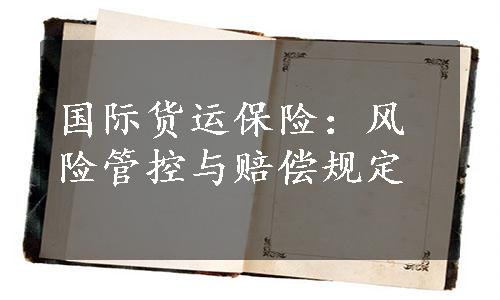 国际货运保险：风
险管控与赔偿规定